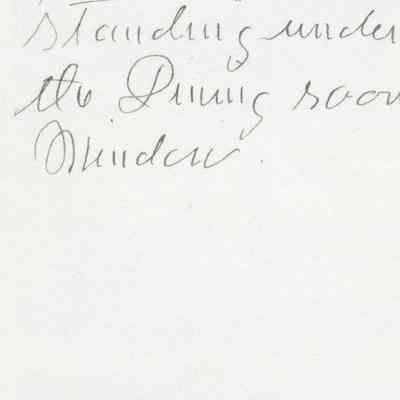 standing under
the Dining room
Window.